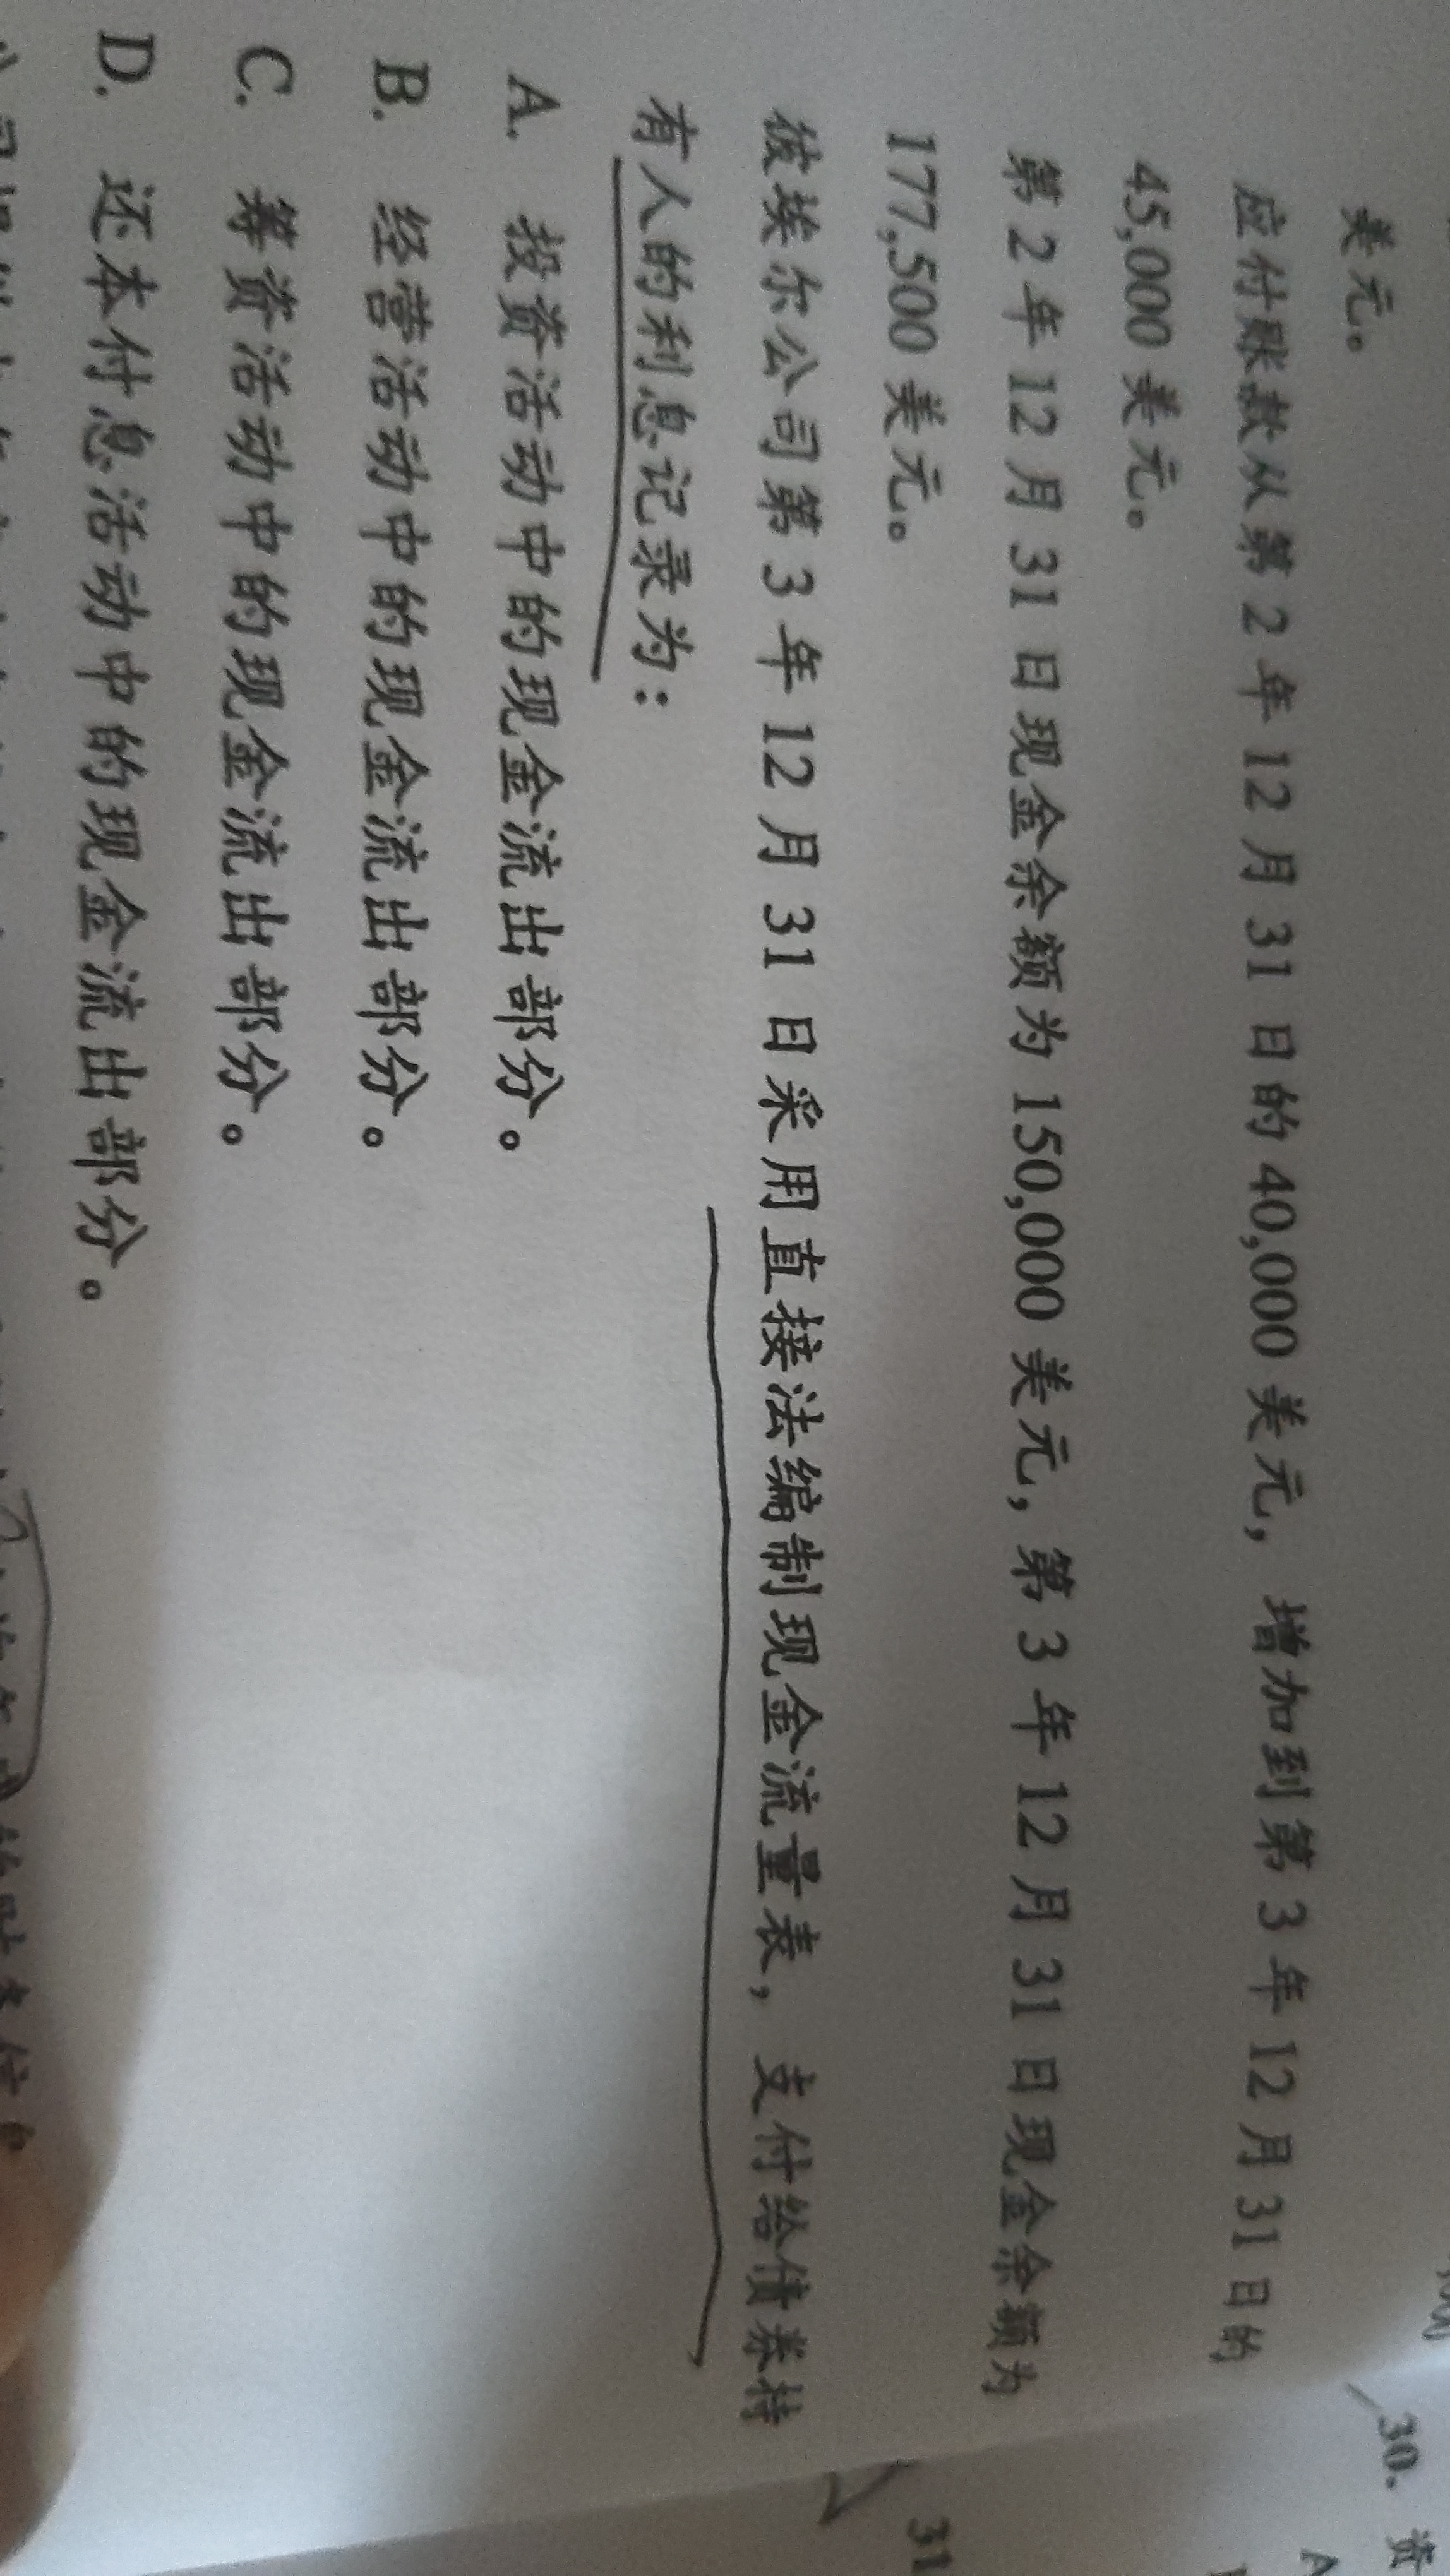 美元。
应付账款从第 2 年 12 月 31 日的 40,000 美元，增加到第 3 年 12 月 31 日的
45,000 美元。
第 2 年 12 月 31 日现金余额为 150,000 美元，第 3 年 12 月 31 日现金余额为
177,500 美元。
彼埃尔公司第 3 年 12 月 31 日采用直接法编制现金流量表，支付给债券持
有人的利息记录为：
A. 投资活动中的现金流出部分。
B. 经营活动中的现金流出部分。
C. 筹资活动中的现金流出部分。
D. 还本付息活动中的现金流出部分。
30. 资
A
31